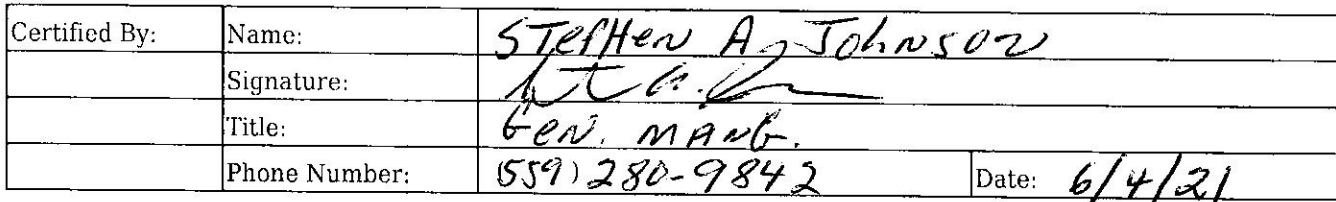 Certified By: Name: STePHen A. JohNSON
Signature:
Title: Gen. MANG.
Phone Number: (559) 280-9842 Date: 6/4/21